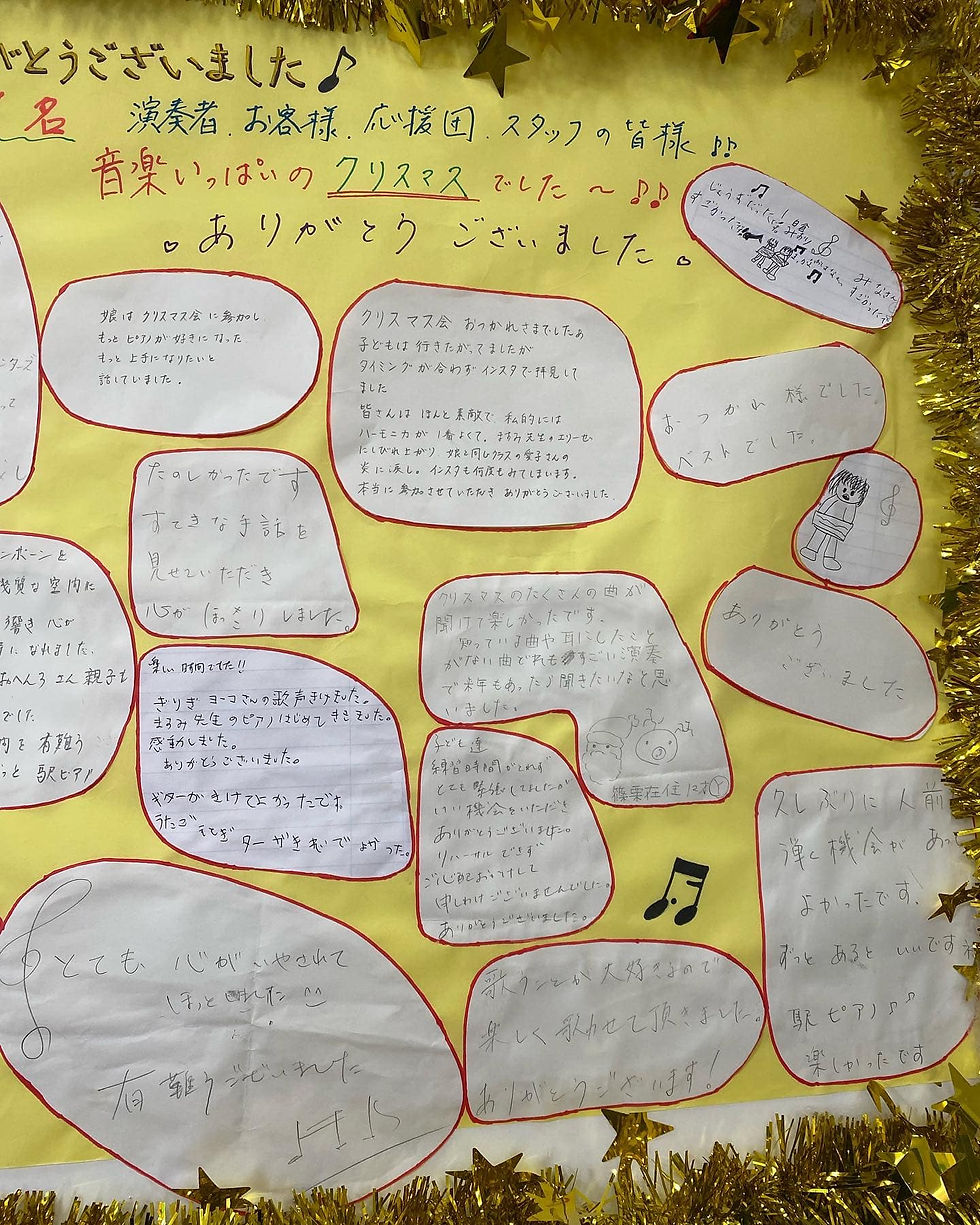 がとうございました♪
名
演奏者.お客様.応援団.スタッフの皆様♪♪
音楽いっぱいの クリスマス でした〜♪♪
ありがとう ございました。
娘は クリスマス会に参加し
もっと ピアノが好きになった
もっと 上手になりたいと
話していました。
クリスマス会 おつかれさまでした
子どもは 行きたがってましたが
タイミングが合わず インスタで拝見して
ました
皆さんは ほんと素敵で 私的には
ハーモニカが 1番よくて、ますみ先生のエリーゼ
にしびれ上がり 娘と同じクラスの愛子さんの
炎に涙し。インスタも何度もみてしまいます。
本当に参加させていただき ありがとうございました。
みなさん
おつかれ 様でした
ベストでした。
たのしかったです
すてきな手話を
見せていただき
心が ほっこり しました。
ンボーンと
質な 空間に
響き 心が
になれました。
さん 親子も
でした
有難う
っと 駅ピアノ
クリスマスのたくさんの曲が
聞けて楽しかったです。
知っている曲や耳にしたこと
がない曲どれもすごい演奏
で来年もあったら聞きたいなと思
いました。
篠栗在住
ありがとう
ございました
楽しい時間でした!!
ヨーコさんの歌声きけました。
まるみ先生のピアノはじめてきききました。
感動しました。
ありがとうございました。
ギターがきけてよかったです
ターがきれいでよかった。
子ども達
練習時間がとれず
とても緊張してましたが
いい機会をいただき
ありがとうございました。
リハーサルできず
ご心配おかけして
申しわけございませんでした。
ありがとうございました。
久しぶりに人前
弾く機会があっ
よかったです!
ずっと あると いいですネ
駅ピアノ♪♪
楽しかったです
とても 心が いやされて
ほっと しました
有難うございました
歌うことが大好きなので
楽しく歌わせて頂きました。
ありがとうございます!